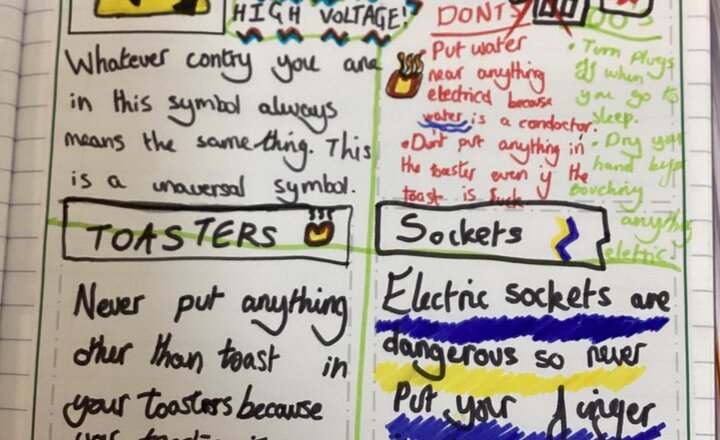 HIGH VOLTAGE!
Whatever contry you are
in this symbol always
means the same thing. This
is a unaversal symbol.
DONTS
Put water
near anything
electrical because
water is a conductor.
• Dont put anything in
the toaster even if the
toast is
DOS
• Turn plugs
off when
you go to
sleep.
• Dry your
hand
touching
anything
eletric!
TOASTERS
Never put anything
other than toast in
your toasters because
your
Sockets
Electric sockets are
dangerous so never
Put your finger